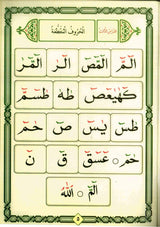 الحُرُوفُ المُقَطَّعَةُ
الٓمّٓ الٓمّٓصٓ الٓرٰ الٓمّٓرٰ
كٓهٰيٰعٓصٓ طٰهٰ طٰسٓمّٓ
طٰسٓ يٰسٓ صٓ حٰمٓ
حٰمٓ ۝ عٓسٓقٓ قٓ نٓ
الٓمّٓ ۝ اللهُ